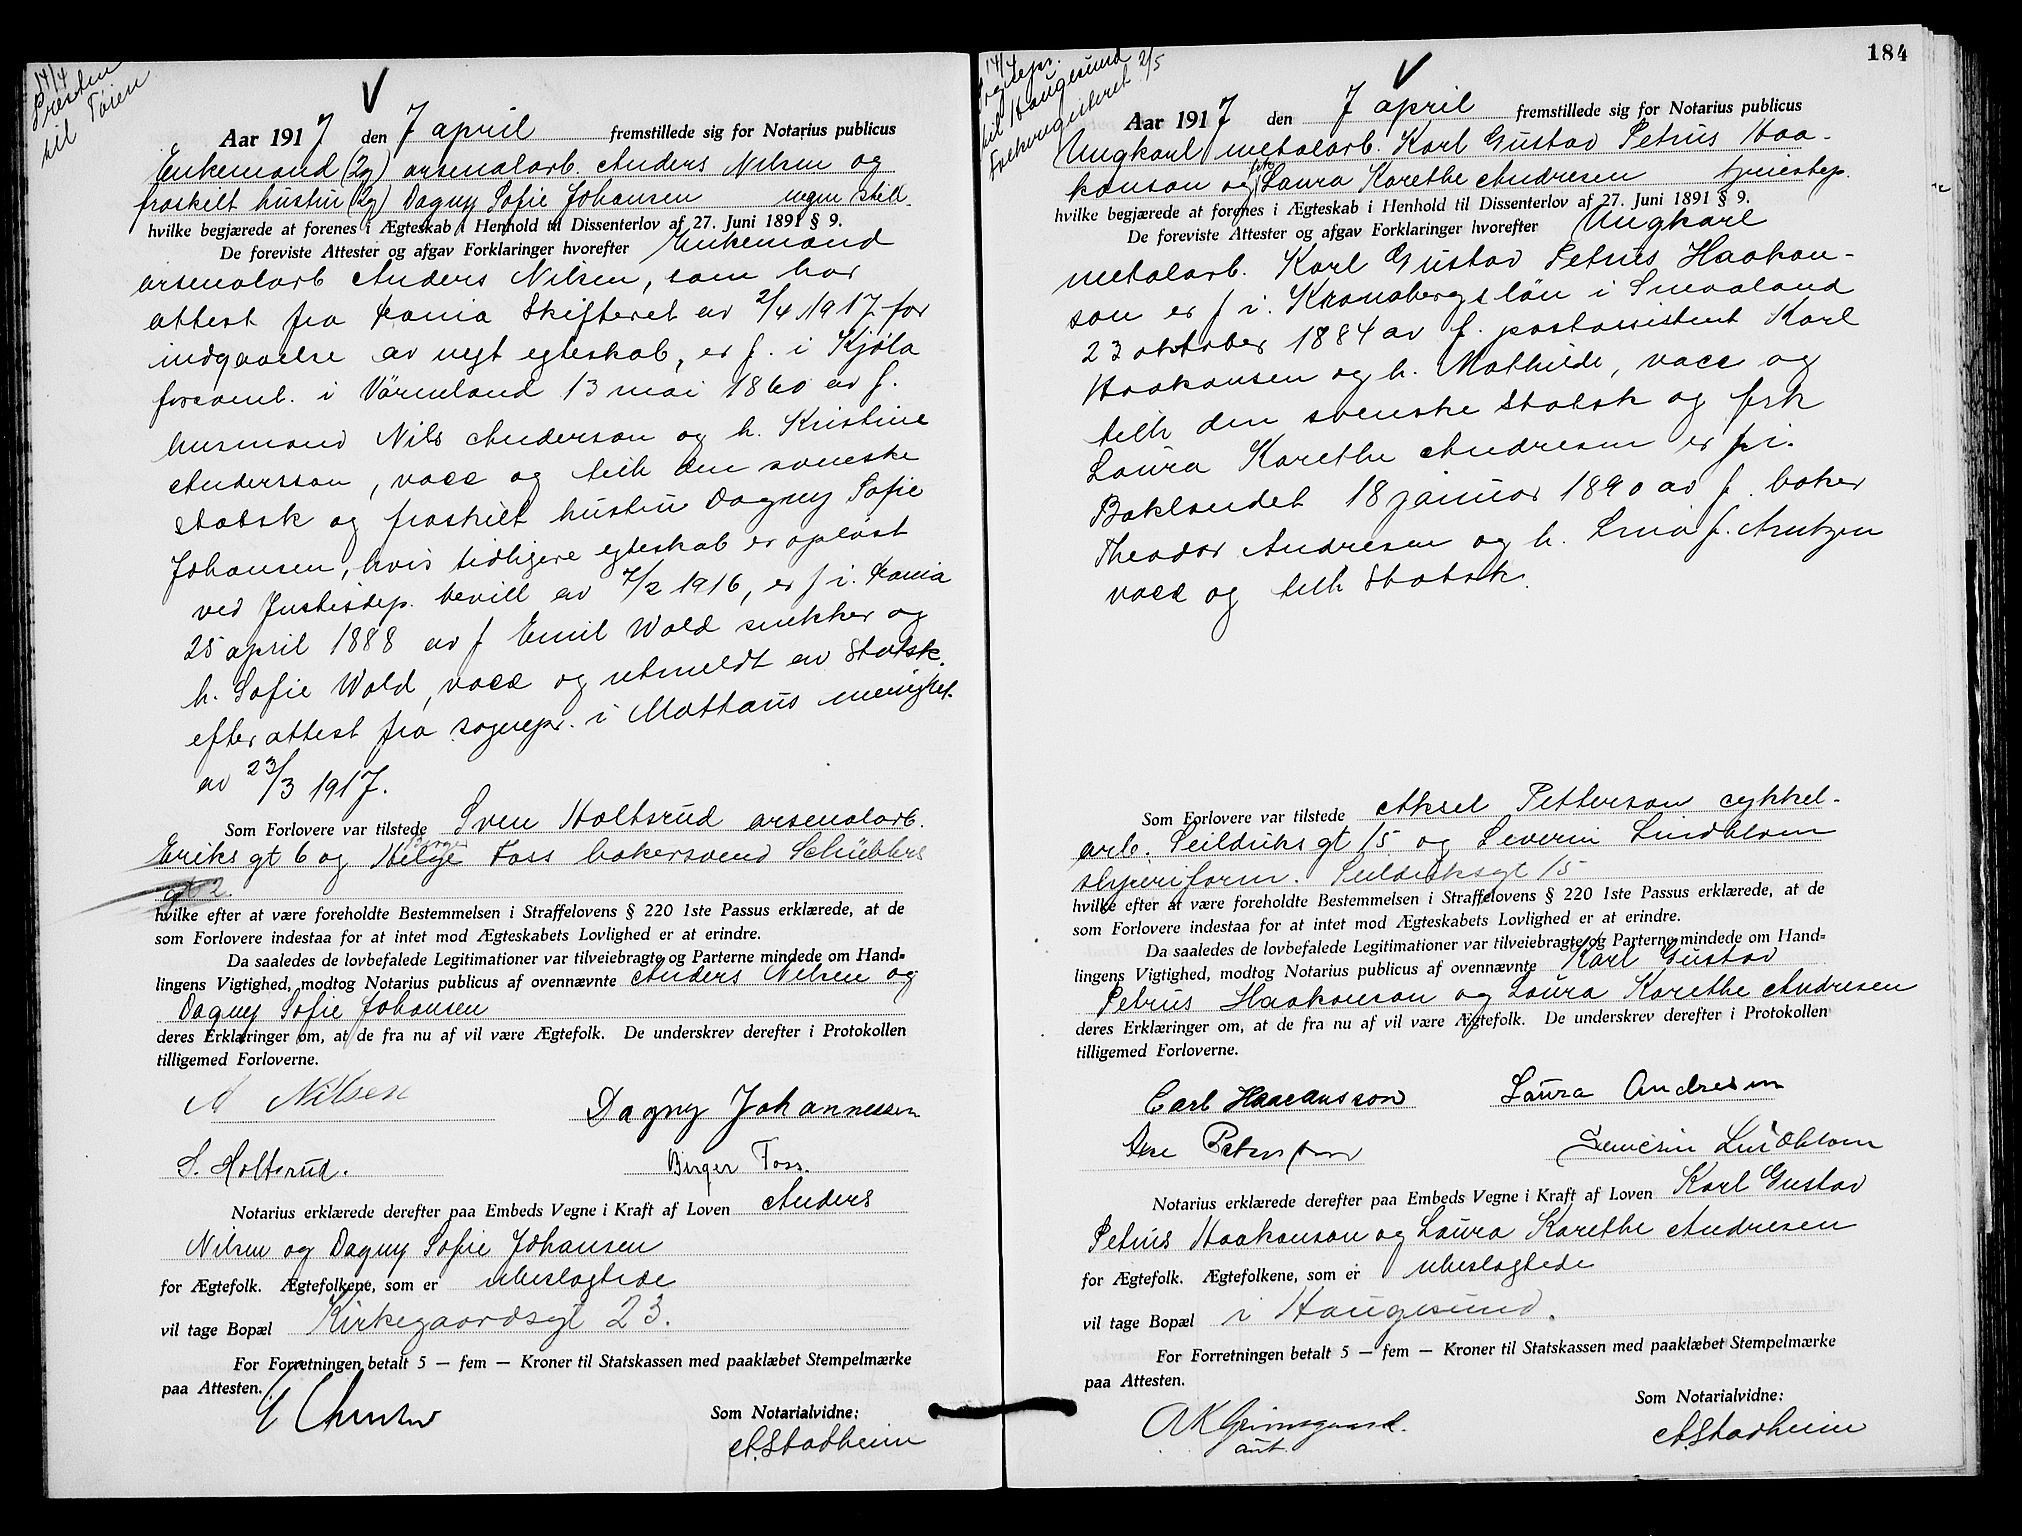 14/4
Presten
til Tøien
Aar 1917 den 7 april fremstillede sig for Notarius publicus
Enkemand (2g) arsenalarb. Anders Nilsen og
fraskilt hustru (2g) Dagny Sofie Johansen uten still.
hvilke begjærede at forenes i Ægteskab i Henhold til Dissenterlov af 27. Juni 1891 § 9.
De foreviste Attester og afgav Forklaringer hvorefter Enkemand
arsenalarb Anders Nilsen, som har
attest fra Kania Skifteret av 2/4 1917 for
indgaaelse av nyt egteskab, er f. i Kjøla
forsaml. i Värmland 13 mai 1860 av f.
husmand Nils Anderson og h. Kristine
Andersson, vacc og tilh den svenske
statsk og fraskilt hustru Dagny Sofie
Johansen, hvis tidligere egteskab er opløst
ved Justisdep. bevill av 7/2 1916, er f i. Kania
25 april 1888 av f Emil Wold snekker og
h. Sofie Wold, vacc og utmeldt av Statsk.
efter attest fra sognepr. i Mattæus menighet.
av 23/3 1917.
Som Forlovere var tilstede Sven Holtsrud arsenalarb.
Eriks gt 6 og Helge Birger Foss bakersvend Schüblers
gt 2.
hvilke efter at være foreholdte Bestemmelsen i Straffelovens § 220 1ste Passus erklærede, at de
som Forlovere indestaa for at intet mod Ægteskabets Lovlighed er at erindre.
Da saaledes de lovbefalede Legitimationer var tilveiebragte og Parterne mindede om Hand=
lingens Vigtighed, modtog Notarius publicus af ovennævnte Anders Nilsen og
Dagny Sofie Johansen
deres Erklæringer om, at de fra nu af vil være Ægtefolk. De underskrev derefter i Protokollen
tilligemed Forloverne.
A Nilsen Dagny Johannessen
S. Holtsrud. Birger Foss.
Notarius erklærede derefter paa Embeds Vegne i Kraft af Loven Anders
Nilsen og Dagny Sofie Johansen
for Ægtefolk. Ægtefolkene, som er ubeslagtede
vil tage Bopæl Kirkegaardsgt 23.
For Forretningen betalt 5 — fem — Kroner til Statskassen med paaklæbet Stempelmærke
paa Attesten.
Som Notarialvidne:
A. Stadheim
184
14/4
Sognepr.
til Haugesund
Folkeregisteret 2/5
Aar 1917 den 7 april fremstillede sig for Notarius publicus
Ungkarl metalarb. Karl Gustav Petrus Haa-
kanson og frk Laura Karethe Andresen tjenestep.
hvilke begjærede at forenes i Ægteskab i Henhold til Dissenterlov af 27. Juni 1891 § 9.
De foreviste Attester og afgav Forklaringer hvorefter Ungkarl
metalarb. Karl Gustav Petrus Haakan-
son er f i. Kronobergs län i Smaaland
23 oktober 1884 av f. postassistent Karl
Haakansen og h. Mathilde, vacc og
tilh den svenske Statsk og frk
Laura Karethe Andresen er f. i.
Baklandet 18 januar 1890 av f. baker
Theodor Andresen og h. Lina f. Arntzen
vacc og tilh Statsk.
Som Forlovere var tilstede Aksel Petterson cykkel-
arb. Seilduks gt 15 og Severin Lindblom
sliperiform. Seilduksgt 15
hvilke efter at være foreholdte Bestemmelsen i Straffelovens § 220 1ste Passus erklærede, at de
som Forlovere indestaa for at intet mod Ægteskabets Lovlighed er at erindre.
Da saaledes de lovbefalede Legitimationer var tilveiebragte og Parterne mindede om Hand=
lingens Vigtighed, modtog Notarius publicus af ovennævnte Karl Gustav
Petrus Haakanson og Laura Karethe Andresen
deres Erklæringer om, at de fra nu af vil være Ægtefolk. De underskrev derefter i Protokollen
tilligemed Forloverne.
Carl Haacansson Laura Andresen
Severin Lindblom
Notarius erklærede derefter paa Embeds Vegne i Kraft af Loven Karl Gustav
Petrus Haakanson og Laura Karethe Andresen
for Ægtefolk. Ægtefolkene, som er ubeslagtede
vil tage Bopæl i Haugesund.
For Forretningen betalt 5 — fem — Kroner til Statskassen med paaklæbet Stempelmærke
paa Attesten.
Som Notarialvidne:
A K Grimsgaard.
aut.
A. Stadheim